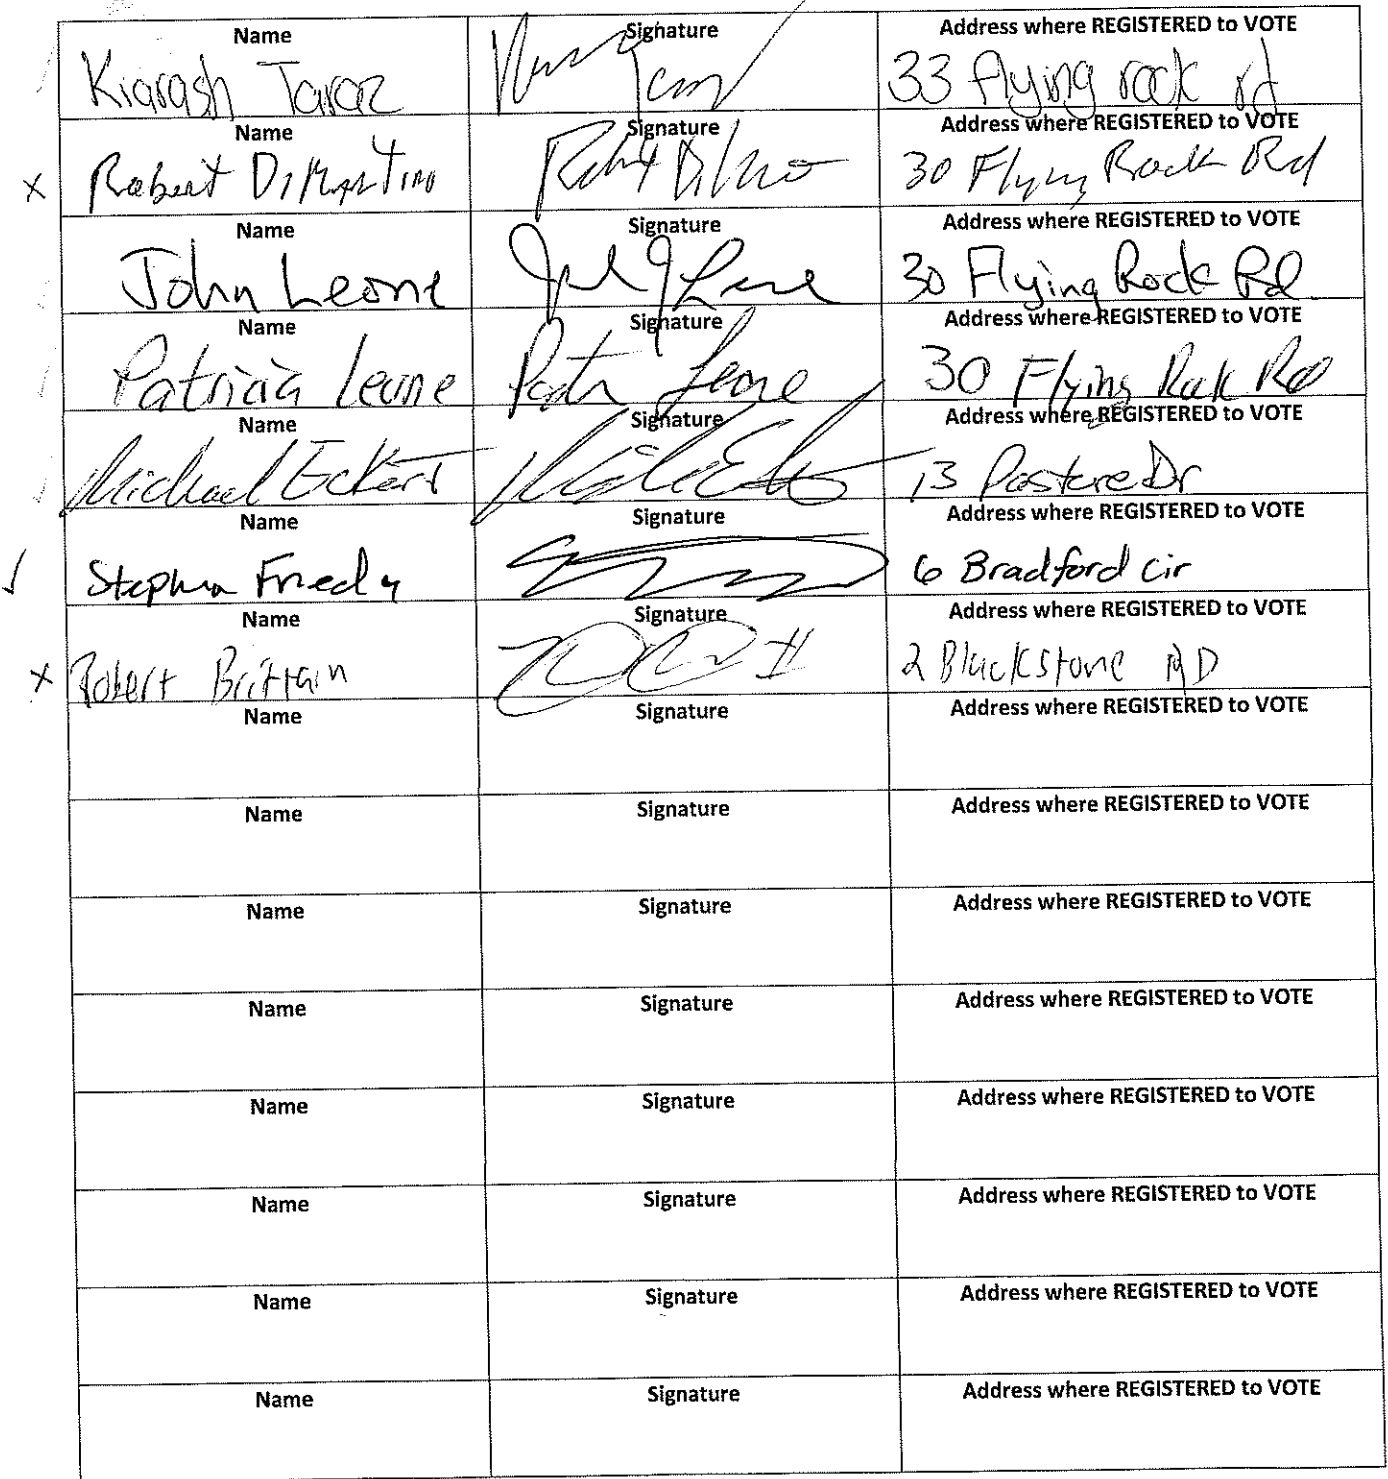 Name Signature Address where REGISTERED to VOTE
Kiarash Taraz 33 flying rock rd
Name Signature Address where REGISTERED to VOTE
x Robert 30 Flying Rock Rd
Name Signature Address where REGISTERED to VOTE
John Leone 30 Flying Rock Rd.
Name Signature Address where REGISTERED to VOTE
Patricia Leone 30 Flying Rock Rd
Name Signature Address where REGISTERED to VOTE
Michael Eckert 13 Pasture Dr
Name Signature Address where REGISTERED to VOTE
✓ 6 Bradford Cir
Name Signature Address where REGISTERED to VOTE
x Robert Brittain 2 Blackstone RD
Name Signature Address where REGISTERED to VOTE
Name Signature Address where REGISTERED to VOTE
Name Signature Address where REGISTERED to VOTE
Name Signature Address where REGISTERED to VOTE
Name Signature Address where REGISTERED to VOTE
Name Signature Address where REGISTERED to VOTE
Name Signature Address where REGISTERED to VOTE
Name Signature Address where REGISTERED to VOTE